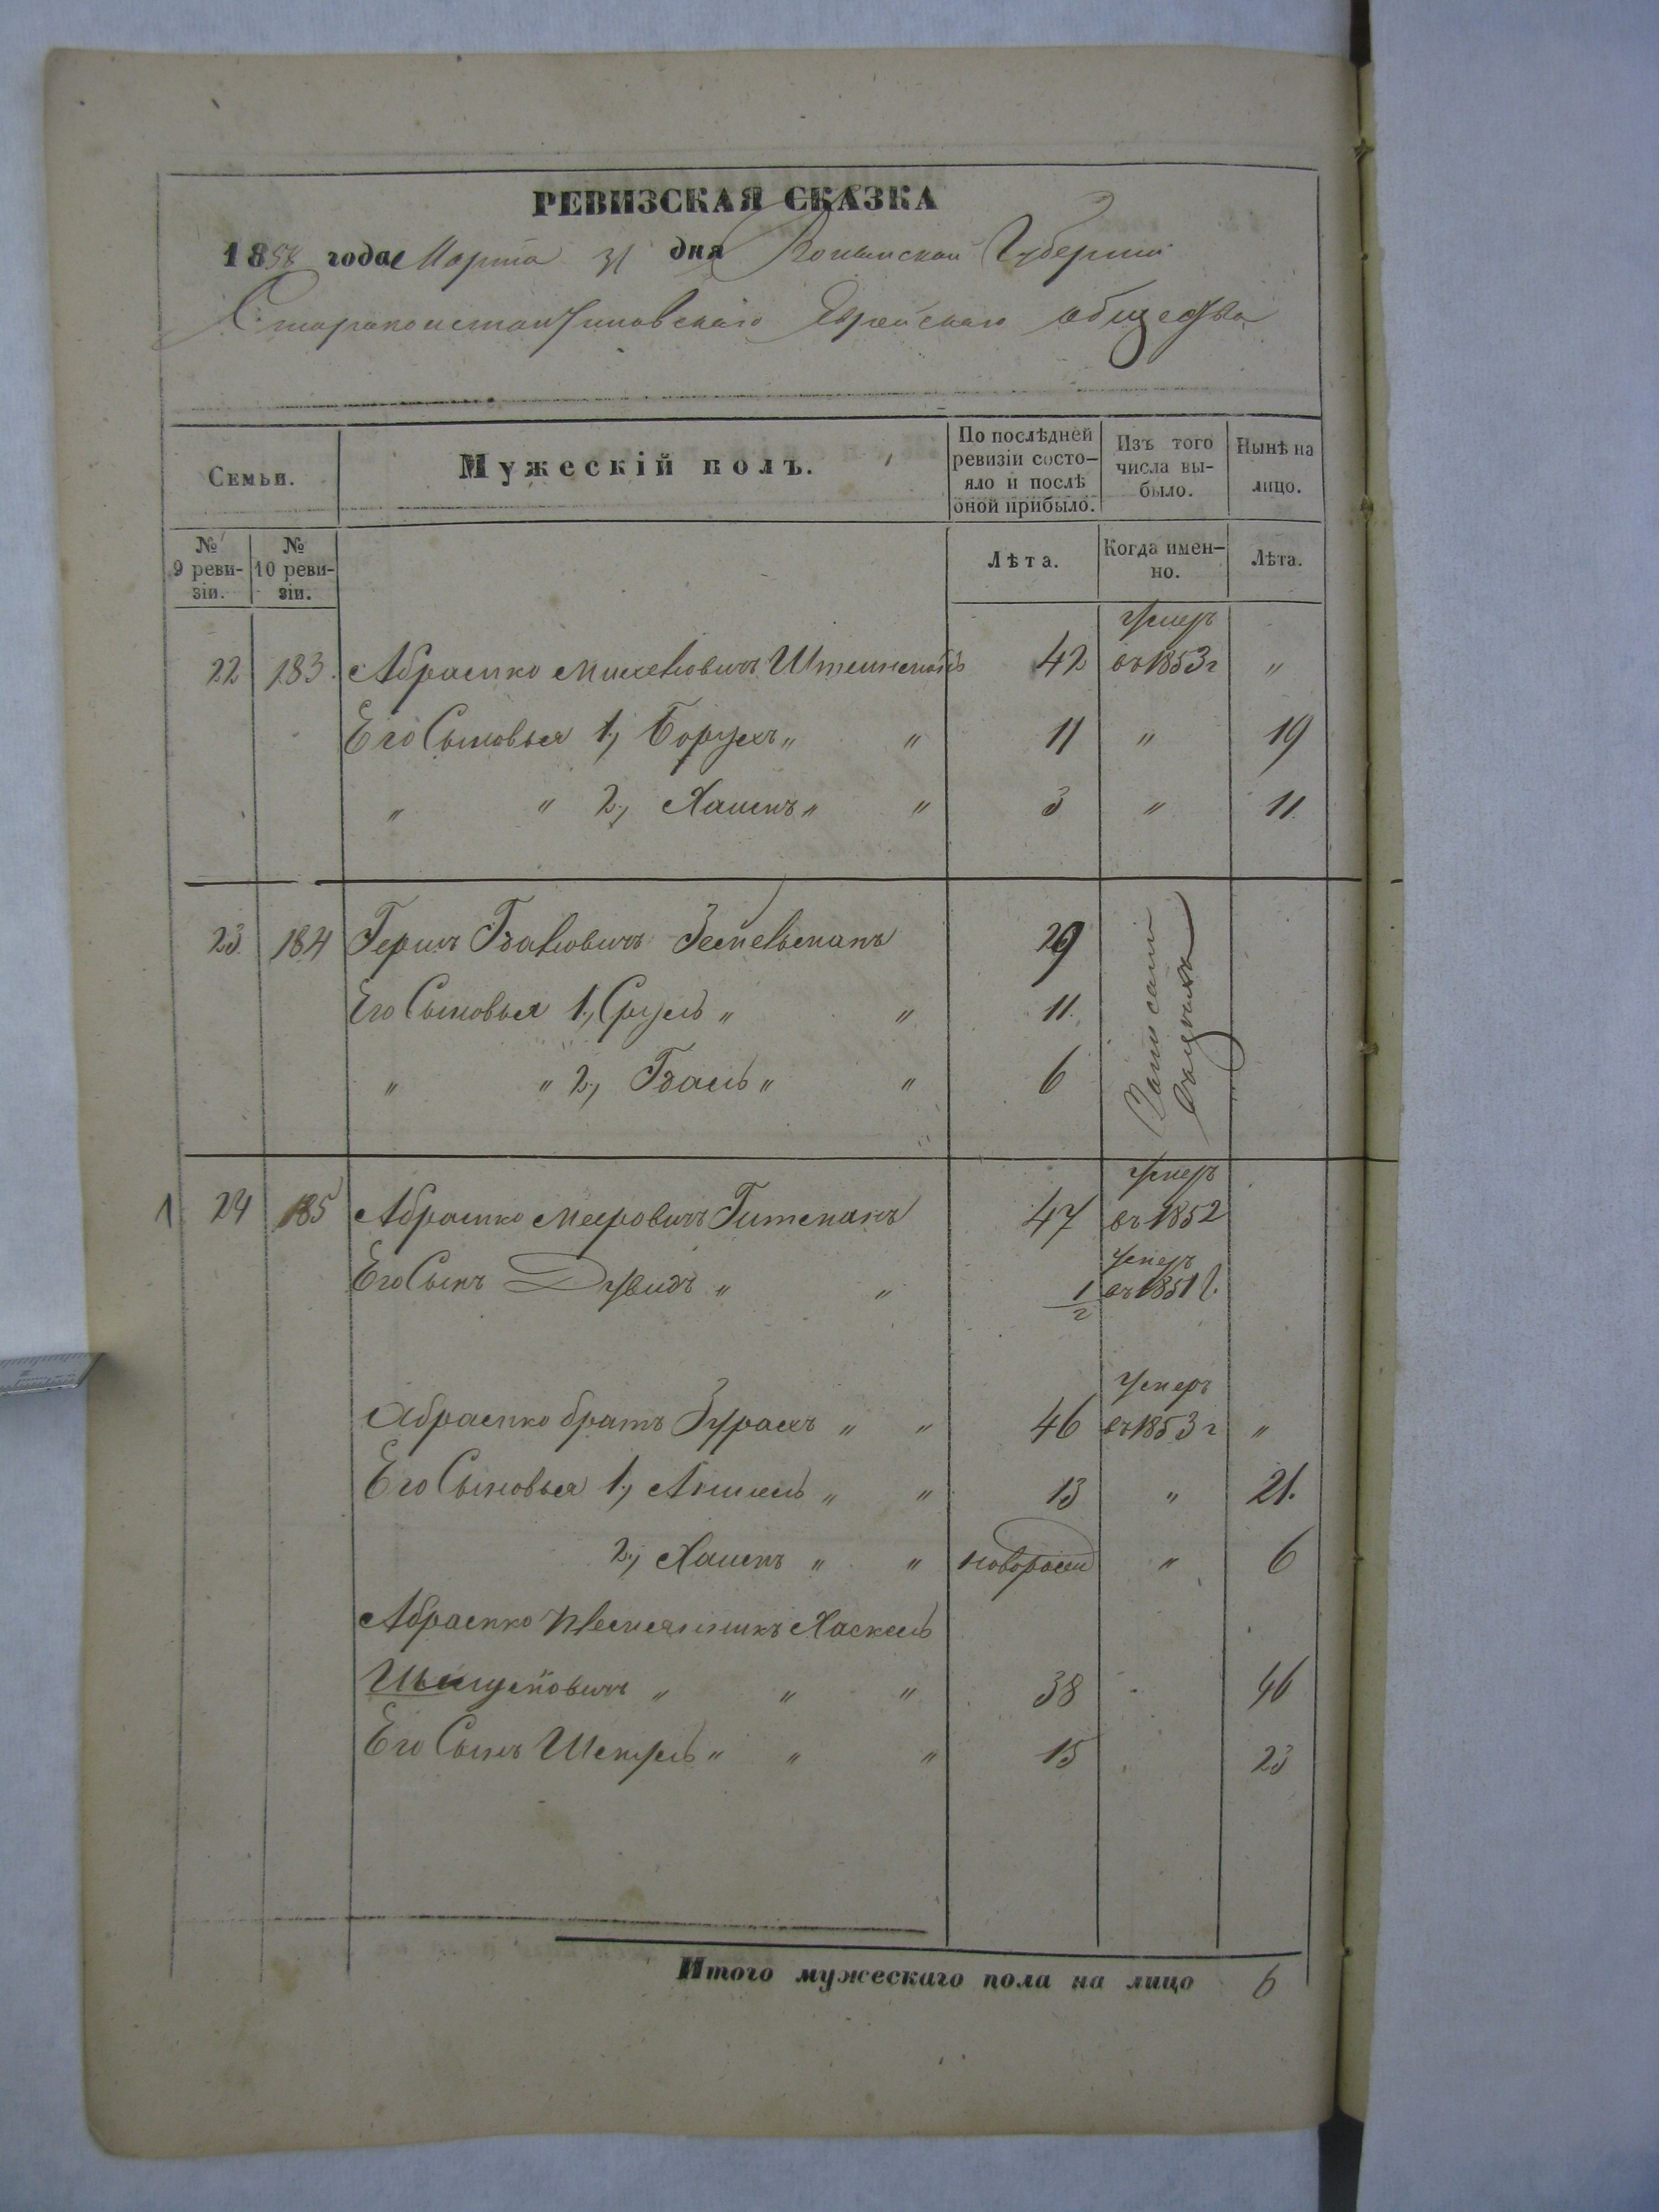 РЕВИЗСКАЯ СКАЗКА
1858 года Марта 31 дня Волынской Губернии
Староконстантиновскаго Еврейскаго общества
Семьи.
Мужескій полъ.
По послѣдней ревизіи состо-
яло и послѣ
оной прибыло.
Изъ того
числа вы-
было.
Нынѣ на
лицо.
№
9 реви-
зіи.
№
10 реви-
зіи.
Лѣта.
Когда имен-
но.
Лѣта.
умеръ
22 183. Абрамко Михелювичъ 42 въ 1853 г "
Его Сыновья 1, Борухъ " " 11 " 19
" " 2, Хаимъ " " 3 " 11
23. 184 Гершъ Зейгельманъ 29
Его Сыновья 1, Сруль " " 11.
" " 2, " " 6
умеръ
1 24 185 Абрамко Мееровичъ Гитманъ 47 въ 1852
умеръ
Его Сынъ Дувидъ " " 1/2 въ 1851 г.
умеръ
Абрамко братъ Зурахъ " " 46 въ 1853 г "
Его Сыновья 1, Аншель " " 13 " 21.
2, Хаимъ " " новорожд " 6
Абрамко племянникъ Хаскель
" " " 38 46
Его Сынъ Шмуль " " " 15 23
Итого мужескаго пола на лицо 6